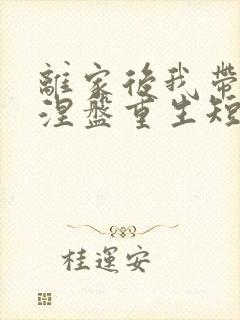 離家後我帶
涅盤重生短
桂運安